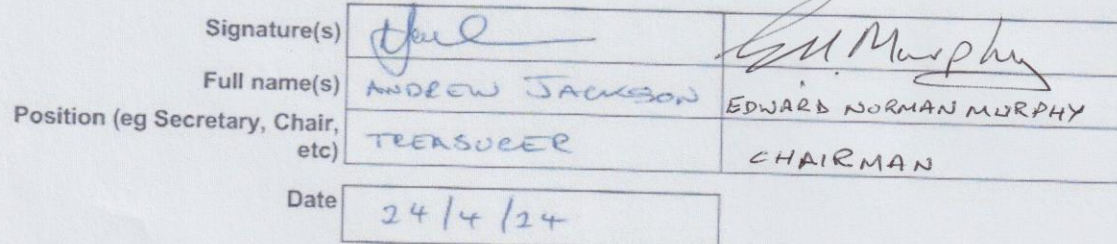 Signature(s) E.N. Murphy
Full name(s) ANDREW JACKSON EDWARD NORMAN MURPHY
Position (eg Secretary, Chair, etc) TREASURER CHAIRMAN
Date 24/4/24